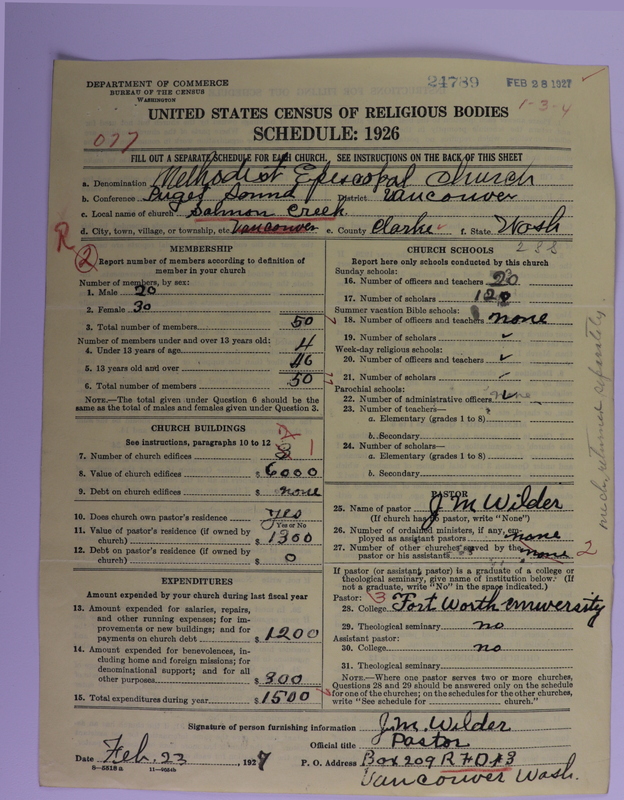 DEPARTMENT OF COMMERCE
BUREAU OF THE CENSUS
WASHINGTON
24789 FEB 28 1927
1-3-4
UNITED STATES CENSUS OF RELIGIOUS BODIES
SCHEDULE: 1926
077
FILL OUT A SEPARATE SCHEDULE FOR EACH CHURCH. SEE INSTRUCTIONS ON THE BACK OF THIS SHEET
a. Denomination Methodist Episcopal Church
b. Conference Puget Sound District Vancouver
c. Local name of church Salmon Creek
d. City, town, village, or township, etc. Vancouver e. County Clarke f. State Wash
R
2
MEMBERSHIP
Report number of members according to definition of
member in your church
Number of members, by sex:
1. Male 20
2. Female 30
3. Total number of members 50
Number of members under and over 13 years old:
4. Under 13 years of age 4
5. 13 years old and over 46
6. Total number of members 50
NOTE.—The total given under Question 6 should be the
same as the total of males and females given under Question 3.
CHURCH BUILDINGS
See instructions, paragraphs 10 to 12
7. Number of church edifices 1
8. Value of church edifices $6000
9. Debt on church edifices $ none
10. Does church own pastor's residence yes
Yes or No
11. Value of pastor's residence (if owned by
church) $1300
12. Debt on pastor's residence (if owned by
church) $ 0
EXPENDITURES
Amount expended by your church during last fiscal year
13. Amount expended for salaries, repairs,
and other running expenses; for im-
provements or new buildings; and for
payments on church debt $1200
14. Amount expended for benevolences, in-
cluding home and foreign missions; for
denominational support; and for all
other purposes $300
15. Total expenditures during year $1500
CHURCH SCHOOLS 288
Report here only schools conducted by this church
Sunday schools:
16. Number of officers and teachers 20
17. Number of scholars
Summer vacation Bible schools:
18. Number of officers and teachers none
19. Number of scholars
Week-day religious schools:
20. Number of officers and teachers
21. Number of scholars
Parochial schools:
22. Number of administrative officers
23. Number of teachers—
a. Elementary (grades 1 to 8)
b. Secondary
24. Number of scholars—
a. Elementary (grades 1 to 8)
b. Secondary
returned separately
PASTOR
25. Name of pastor J M Wilder
(If church has no pastor, write "None")
26. Number of ordained ministers, if any, em-
ployed as assistant pastors none
27. Number of other churches served by the
pastor or his assistants none 2
If pastor (or assistant pastor) is a graduate of a college or
theological seminary, give name of institution below. (If
not a graduate, write "No" in the space indicated.)
Pastor: 3
28. College Fort Worth Unuversity
29. Theological seminary no
Assistant pastor:
30. College no
31. Theological seminary
NOTE.—Where one pastor serves two or more churches,
Questions 28 and 29 should be answered only on the schedule
for one of the churches; on the schedules for the other churches,
write "See schedule for church."
Signature of person furnishing information J. M. Wilder
Official title Pastor
Date Feb. 23, 1927 P. O. Address Box 209 R F D #3
8—5518a 11—9664b
Vancouver Wash.